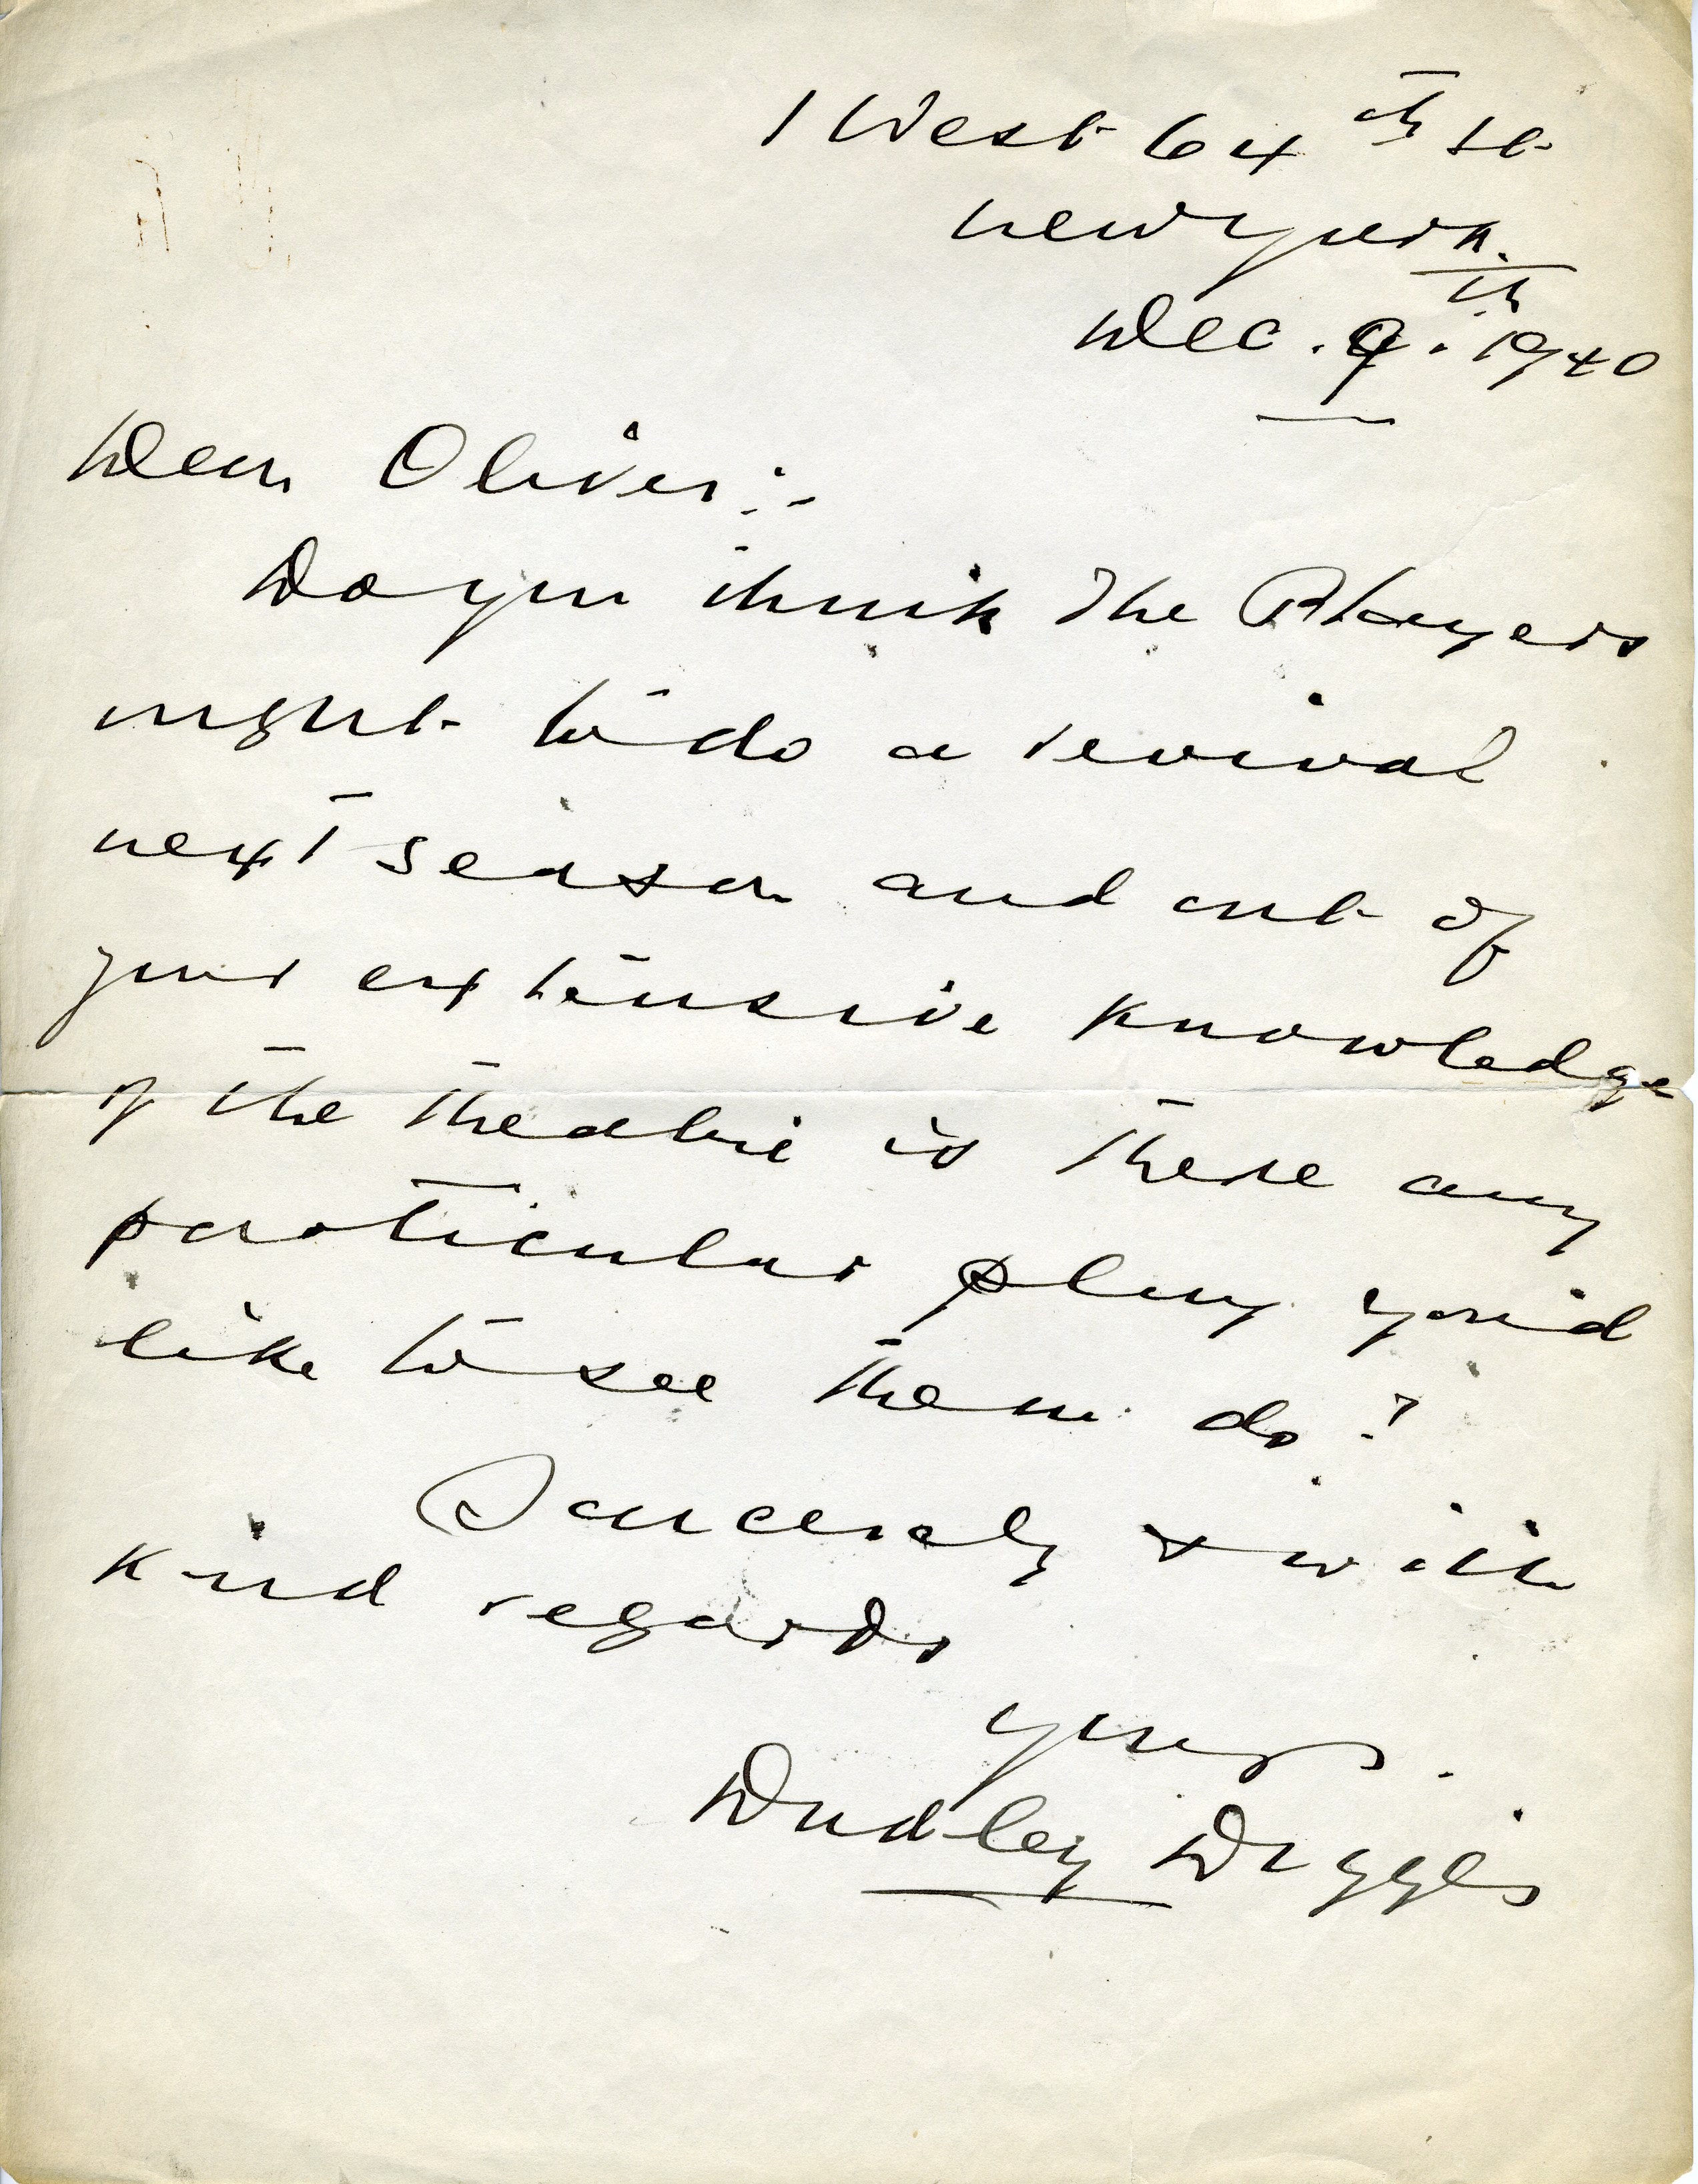 1 West 64th St
New York.
Dec. 9th. 1940
Dear Oliver:-
Do you think The Players
ought to do a revival
next season and out of
your extensive knowledge
of the theatre is there any
particular play you'd
like to see them do?
Sincerely & with
kind regards
yours.
Dudley Digges